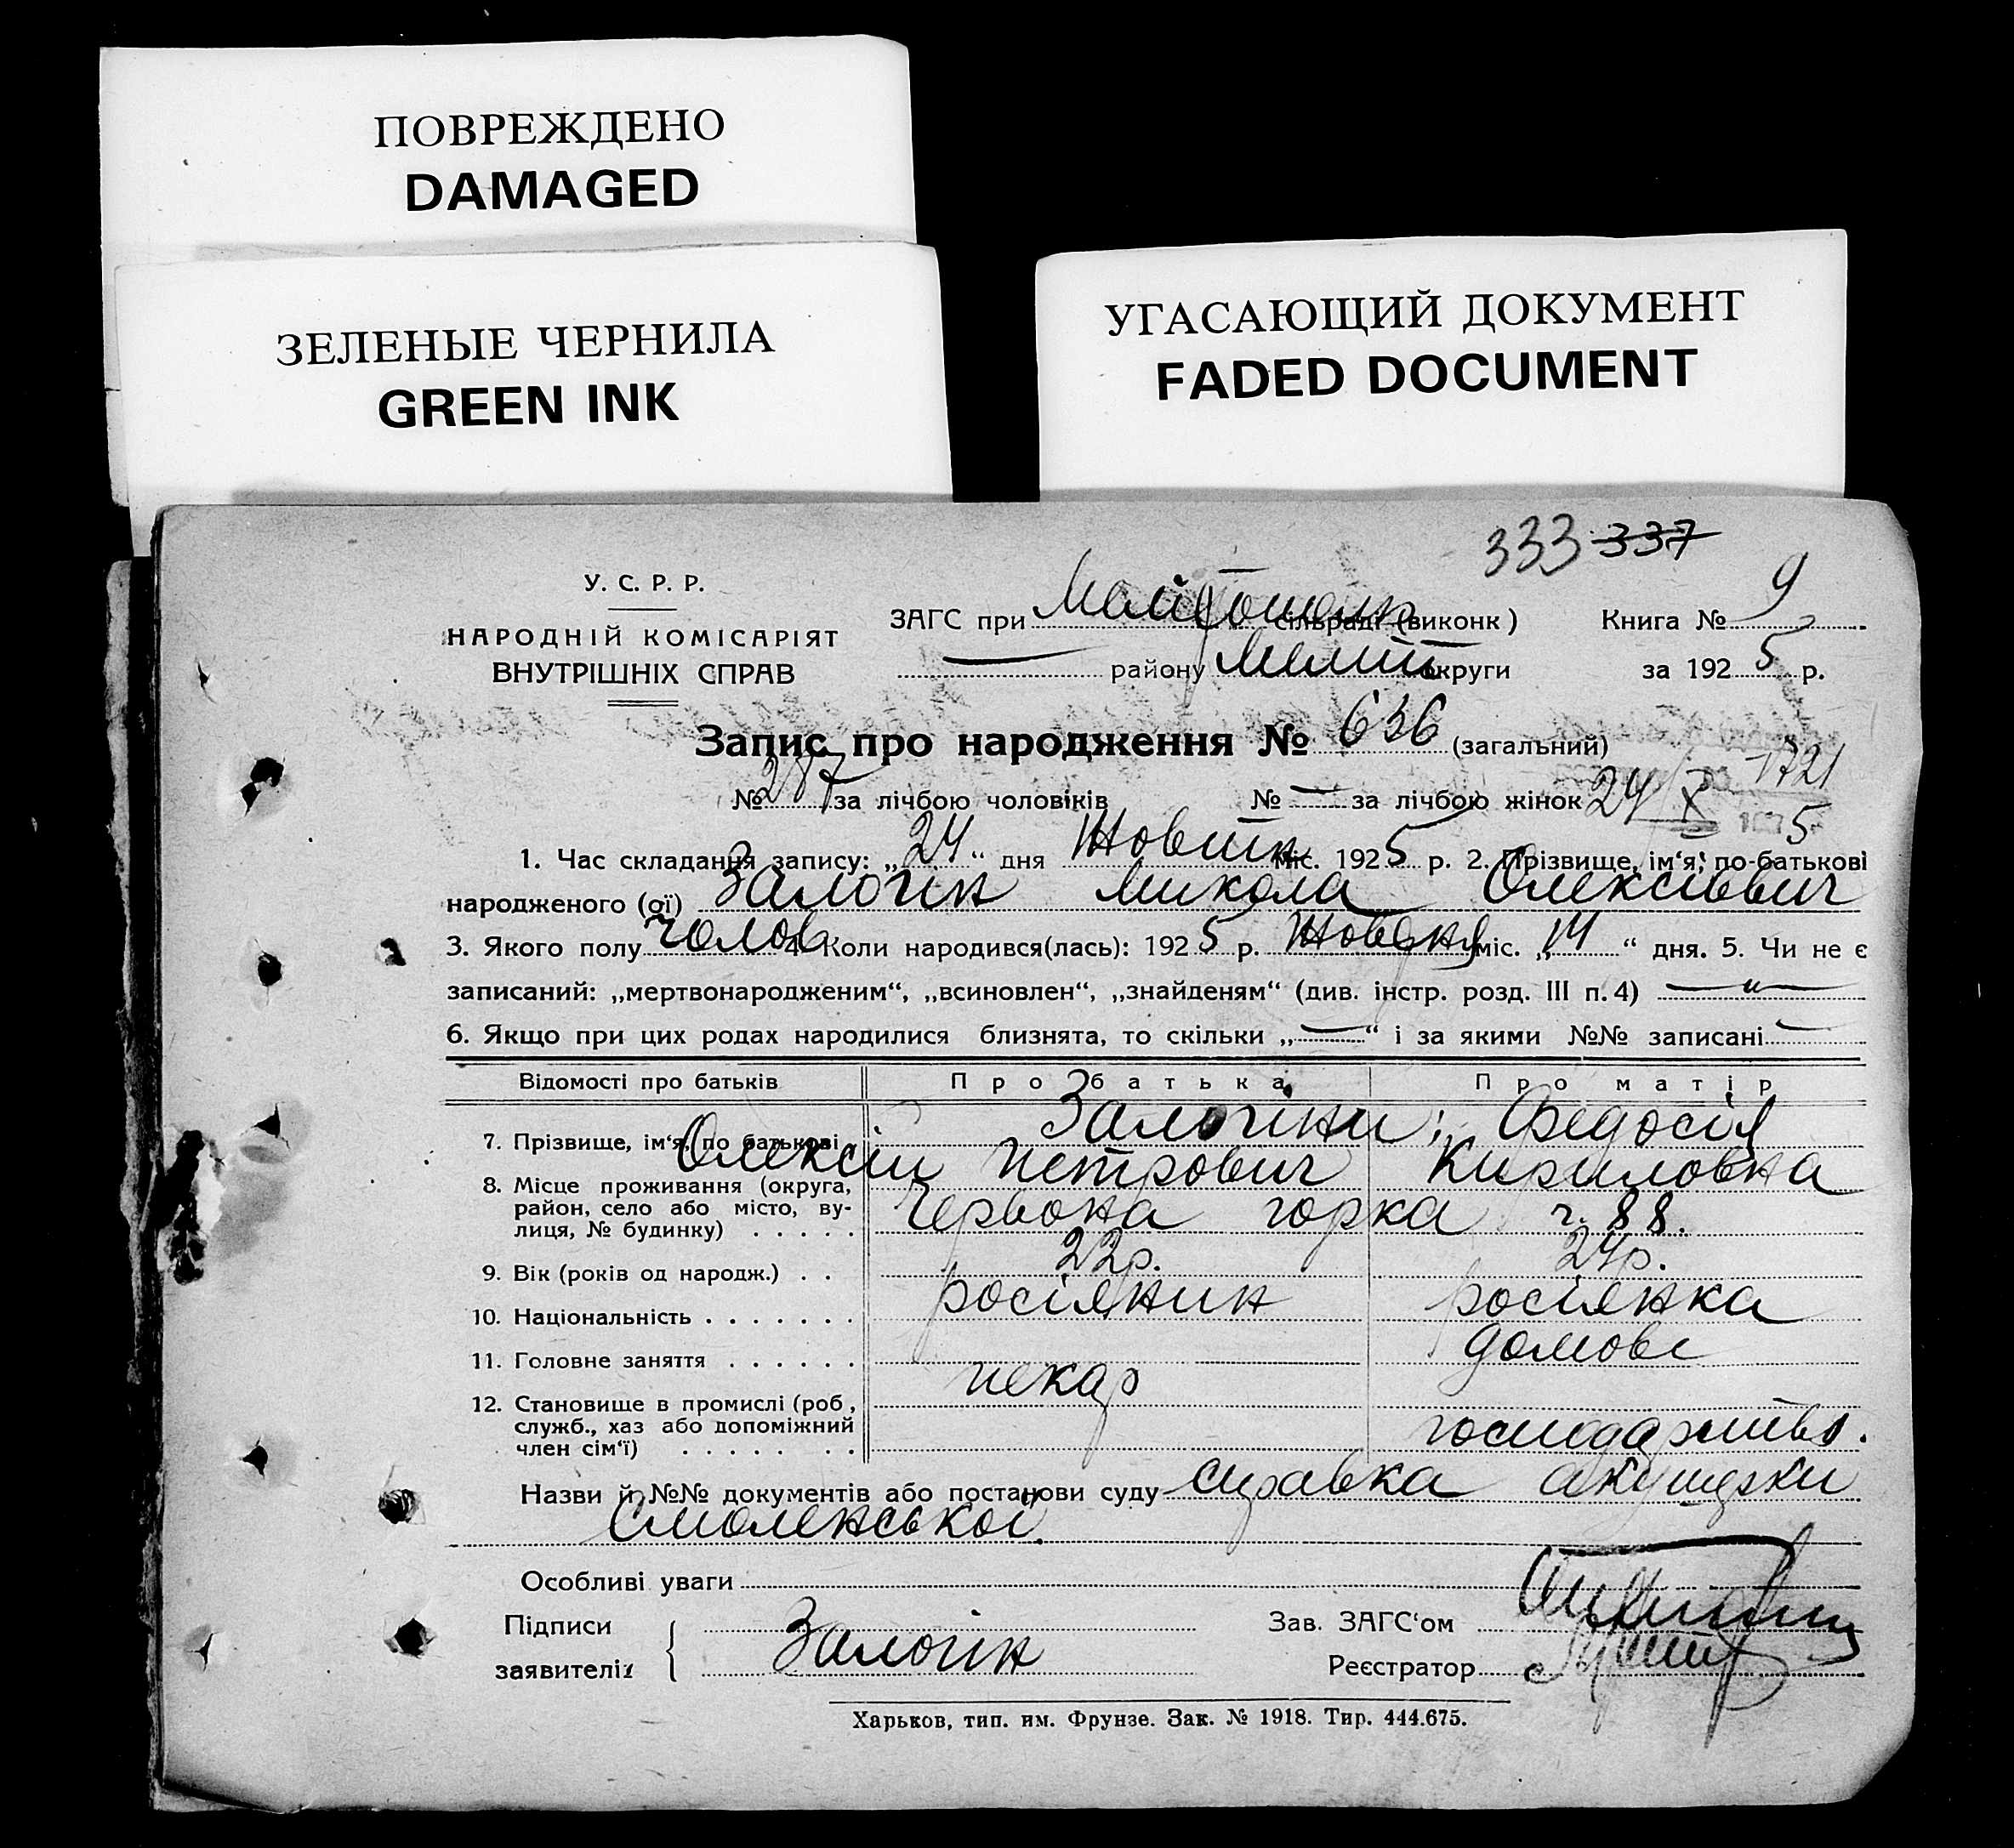 ПОВРЕЖДЕНО
DAMAGED
ЗЕЛЕНЫЕ ЧЕРНИЛА
GREEN INK
УГАСАЮЩИЙ ДОКУМЕНТ
FADED DOCUMENT
333 337
У. С. Р. Р.
НАРОДНІЙ КОМІСАРІЯТ
ВНУТРІШНІХ СПРАВ
ЗАГС при сільраді (виконк) Книга № 9
— району Меліт округи за 1925 р.
Запис про народження № 636 (загальний)
№ 287 за лічбою чоловіків № — за лічбою жінок 24/X 5
1721
1. Час складання запису: „24“ дня Жовтн міс. 1925 р. 2. Прізвище, ім‘я, по-батькові
народженого (ої) Залогін Микола Олексіьвич
3. Якого полу чолов 4. Коли народився(лась): 1925 р. міс. „14“ дня. 5. Чи не є
записаний: „мертвонародженим“, „всиновлен“, „знайденям“ (див. інстр. розд. III п. 4) — „ —
6. Якщо при цих родах народилися близнята, то скільки „—“ і за якими №№ записані —
Відомості про батьків Про батька Про матір
7. Прізвище, ім‘я, по батькові . Залогіни; Федосія
Олексій Петрович Кириловна
8. Місце проживання (округа,
район, село або місто, ву-
лиця, № будинку) . . . . . Червона горка ч. 88.
9. Вік (років од народж.) . . 22р. 24р.
10. Національність . . . . . . . росіянин росіянка
11. Головне заняття . . . . . . пекар домове
12. Становище в промислі (роб,
служб., хаз або допоміжний
член сім‘ї) . . . . . . . господарство.
Назви й №№ документів або постанови суду справка акушерки
Смоленської.
Особливі уваги
Підписи
заявителів Залогін
Зав. ЗАГС‘ом
Реєстратор
Харьков, тип. им. Фрунзе. Зак. № 1918. Тир. 444.675.